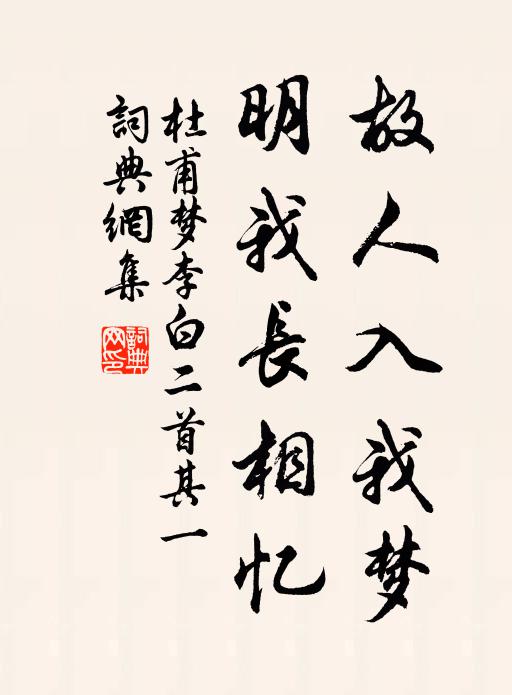 故人入我梦
明我長相忆
杜甫梦李白二首其一
詞典網集
詞典
网印